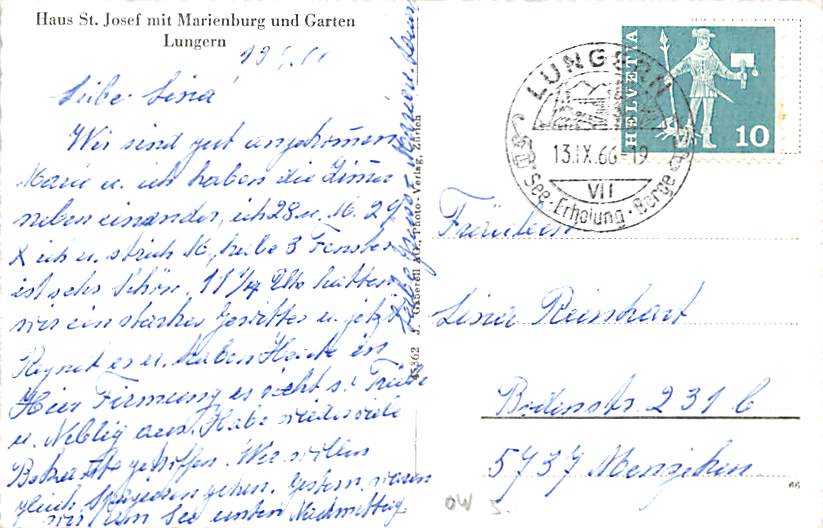 Haus St. Josef mit Marienburg und Garten
Lungern
Liebe Lina
Wir sind gut angekommen
Marie u. ich haben die Zimer
neben einander, ich 28 u. M. 29
ich u. M, habe 3 Fenster
ist sehr Schön. 11 1/4 Uhr hatten
wir ein starkes Gewitter u. jetzt
Regnet es u. haben Heute in
Hier Firmung es sieht s. Trübe
u. Neblig aus. Habe wieder viele
Bekante getroffen. Wir wollen
gleich Spazieren gehen. Gestern waren
wir am See unten Nachmittag
45362 J. Gaberell AG., Photo-Verlag, Zürich
LUNGERN
13.IX.66-19
VII
See · Erholung · Berge
HELVETIA
10
Fräulein
Lina Reinhart
231 b
5737 Menziken
66
OW